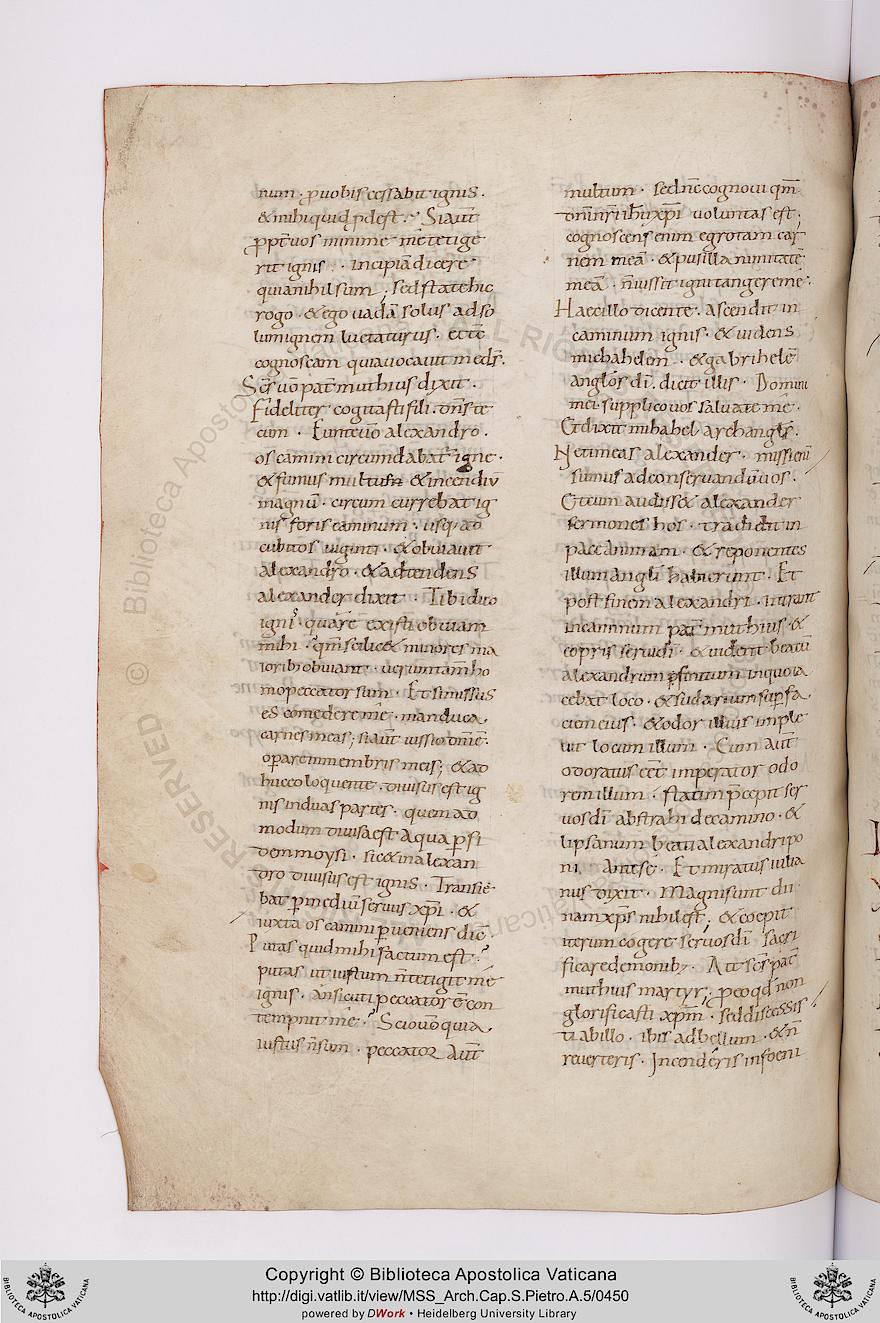 num · ꝓ uobis cessabit ignis ·
& mihi quid ꝓdest ·; Si aut̄
ꝓpt̄ uos minime me tetige
rit ignis · incipiā dicere
quia nihil sum ; sed state hic
rogo · & ego uadā solus ad so
lum ignem luctaturus · et tc̄
cognoscam quia uocauit me dn̄s ·
Scs̄ uō pat̄ muthius dixit ·
Fideliter cogitasti fili · dn̄s te
cum · Eunte uō alexandro ·
os camini circumdabat igne ·
& fumus multus & incendiū
magnū · circum currebat ig
nis foris caminum · usq; ad
cubitos uiginti · & obuiauit
alexandro · & adtendens
alexander dixit · Tibi dico
igni · quare existi obuiam
mihi · qm̄ scilic& minores ma
iorib; obuiant · uerumtam̄ ho
mo peccator sum · Et si missus
es comedere me · manduca
carnes meas ; si aut̄ iussio dn̄i ē ·
operare in membris meis ; & ad
hucco loquente · diuisus est ig
nis in duas partes · quem ad
modum diuisa est aqua ꝑ si
donmoysi · sic & in alexan
dro diuisus est ignis · Transie
bat ꝑ mediū seruus xp̄i · &
iuxta os camini ꝑueniens dic̄ ·
Putas quid mihi factum est ·
putas ut iustum n̄ tetigit me
ignis · an sicuti peccatorē con
tempnit me · Scio uō quia
iustus n̄ sum · peccator aut̄
multum · sed nc̄ cognoui qm̄
dn̄i nr̄i ih̄u xp̄i uoluntas est ;
cognoscens enim egrotam car
nem meā · & pusillanimitatē
meā · n̄ iussit igni tangere me ·
Haec illo dicente · ascendit in
caminum ignis · & uidens
michahelem · & gabrihelē
anglos dī · dicit illis · Domini
mei · supplico uos saluate me ·
Et dixit mihahel archangls̄ ·
Ne timeas alexander · missi enī
sumus ad conseruandū uos ·
Et cum audiss& alexander
sermones hos · tradidit in
pace animam · & reponentes
illum angli habierunt · Et
post finem alexandri · intrauit
in caminum pat̄ muthius · &
copris serui dī · & uident beatū
alexandrum positum in quo ia
cebat loco · & sudarium sup̄ fa
ciem eius · & odor illius imple
uit locum illum · Cum aut̄
odoratus eēt imperator odo
rem illum · statim p̄cepit ser
uos dī abstrahi de camino · &
lipsanum beati alexandri po
ni ante se · Et miratus iulia
nus dixit · Magni sunt dii
nam xp̄s nihil est ; & coepit
iterum cogere seruos dī sacri
ficare demonib; · Ait scs̄ pat̄
muthius martyr ; ꝓ eo qd̄ non
glorificasti xp̄m · sed discessis
ti ab illo · ibis ad bellum · & n̄
reuerteris · Incenderis in foeni
Copyright © Biblioteca Apostolica Vaticana
http://digi.vatlib.it/view/MSS_Arch.Cap.S.Pietro.A.5/0450
powered by DWork • Heidelberg University Library